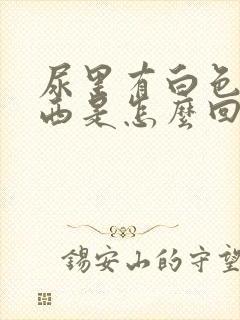 尿里有白色
西是怎麼回
錫安山的守望